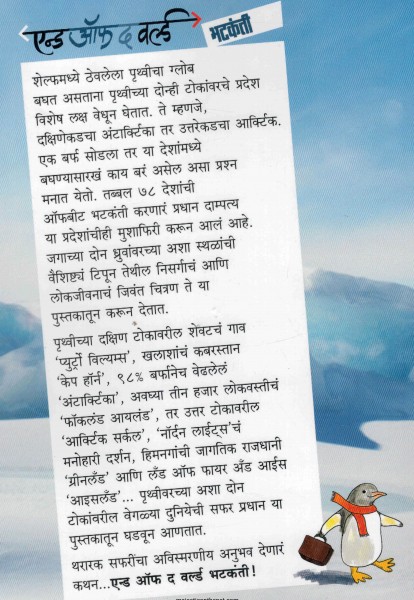 एन्ड ऑफ द वर्ल्ड भटकंती
शेल्फमध्ये ठेवलेला पृथ्वीचा ग्लोब
बघत असताना पृथ्वीच्या दोन्ही टोकांवरचे प्रदेश
विशेष लक्ष वेधून घेतात. ते म्हणजे,
दक्षिणेकडचा अंटार्क्टिका तर उत्तरेकडचा आर्क्टिक.
एक बर्फ सोडला तर या देशांमध्ये
बघण्यासारखं काय बरं असेल असा प्रश्न
मनात येतो. तब्बल ७८ देशांची
ऑफबीट भटकंती करणारं प्रधान दाम्पत्य
या प्रदेशांचीही मुशाफिरी करून आलं आहे.
जगाच्या दोन ध्रुवांवरच्या अशा स्थळांची
वैशिष्ट्यं टिपून तेथील निसर्गाचं आणि
लोकजीवनाचं जिवंत चित्रण ते या
पुस्तकातून करून देतात.
पृथ्वीच्या दक्षिण टोकावरील शेवटचं गाव
'प्युर्ट्रो विल्यम्स', खलाशांचं कबरस्तान
'केप हॉर्न', ९८% बर्फानेच वेढलेलं
'अंटार्क्टिका', अवघ्या तीन हजार लोकवस्तीचं
'फॉकलंड आयलंड', तर उत्तर टोकावरील
'आर्क्टिक सर्कल', 'नॉर्दन लाईट्स'चं
मनोहारी दर्शन, हिमनगांची जागतिक राजधानी
'ग्रीनलँड' आणि लँड ऑफ फायर अँड आईस
'आइसलँड'... पृथ्वीवरच्या अशा दोन
टोकांवरील वेगळ्या दुनियेची सफर प्रधान या
पुस्तकातून घडवून आणतात.
थरारक सफरींचा अविस्मरणीय अनुभव देणारं
कथन...एन्ड ऑफ द वर्ल्ड भटकंती!